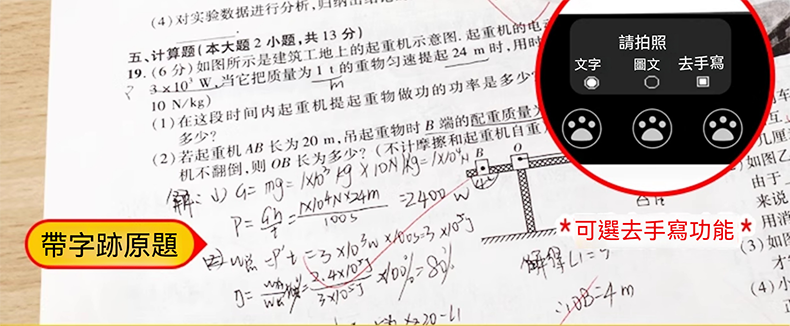 (4)对实验数据进行分析,归纳出结论
五、计算题(本大题2小题,共13分)
19.(6分)如图所示是建筑工地上的起重机示意图.起重机的电
3×10³ W,当它把质量为1 t的重物匀速提起24 m时,用时
m
10 N/kg)
(1)在这段时间内起重机提起重物做功的功率是多少
多少?
(2)若起重机AB长为20 m,吊起重物时B端的配重质量为
机不翻倒,则OB长为多少?(不计摩擦和起重机自重
解:(1) G=mg=1×10³kg×10N/kg=1×10⁴N
P=Gh/t=1×10⁴N×24m/100s=2400w
=3×10³w×100s=3×10⁵J
2.4×10⁵J/3×10⁵J×100%=80%
B
O
解得L1=
OB=4m
帶字跡原題
請拍照
文字
圖文
去手寫
*可選去手寫功能*
互
几厘
如图乙
由于
来说
用消
(3)如图
才
(4)小